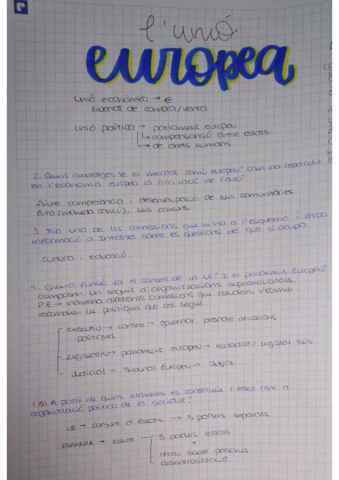 l'unió
europea
Unió econòmica → €
llibertat de compra/venta
Unió política → parlament europeu
↳ compensació entre estats.
↳ de drets humans.
2. Quins avantatges té la mercat comú europeu? com ha repercutit
en l'economia europea la circulació de l'euro?
lliure competència i desaparició de les comunitàries
€uro (moneda única), lleis comuns.
3. Tria una de les comissions que hi ha a l'esquema i cerca
informació a Internet sobre les qüestions de que s'ocupa.
cultura i educació.
4. Quina funció té el consell de la UE? I el parlament Europeu?
comparteixen un seguit d'organitzacions supranacionals.
P.E → nomena diferents comissions que estudien, informen i
recomanen les polítiques que cal seguir.
executiu → consell → governar, prendre decisions
polítiques
legislatiu → parlament europeu → associar/legislar lleis
Judicial → Tribunal Europeu → Jutjar.
1.(5) A partir de quins elements es constitueix l'estat com a
organització política de la societat?
UE → conjunt d'estats → 3 poders separats
ESPANYA → estat → 3 poders estats
↳ incou sobre persones
descentralització